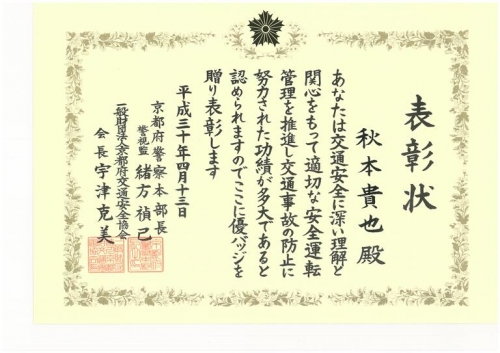 表彰状
秋本貴也殿
あなたは交通安全に深い理解と
関心をもって適切な安全運転
管理を推進し交通事故の防止に
努力された功績が多大であると
認められますのでここに優バッジを
贈り表彰します
平成三十年四月十三日
京都府警察本部長
警視監 緒方禎己
一般財団法人京都府交通安全協会
会長宇津克美